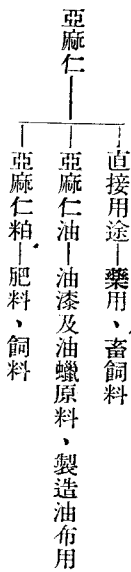 亞麻仁
直接用途─藥用、畜飼料
亞麻仁油─油漆及油蠟原料、製造油布用
亞麻仁粕─肥料、飼料